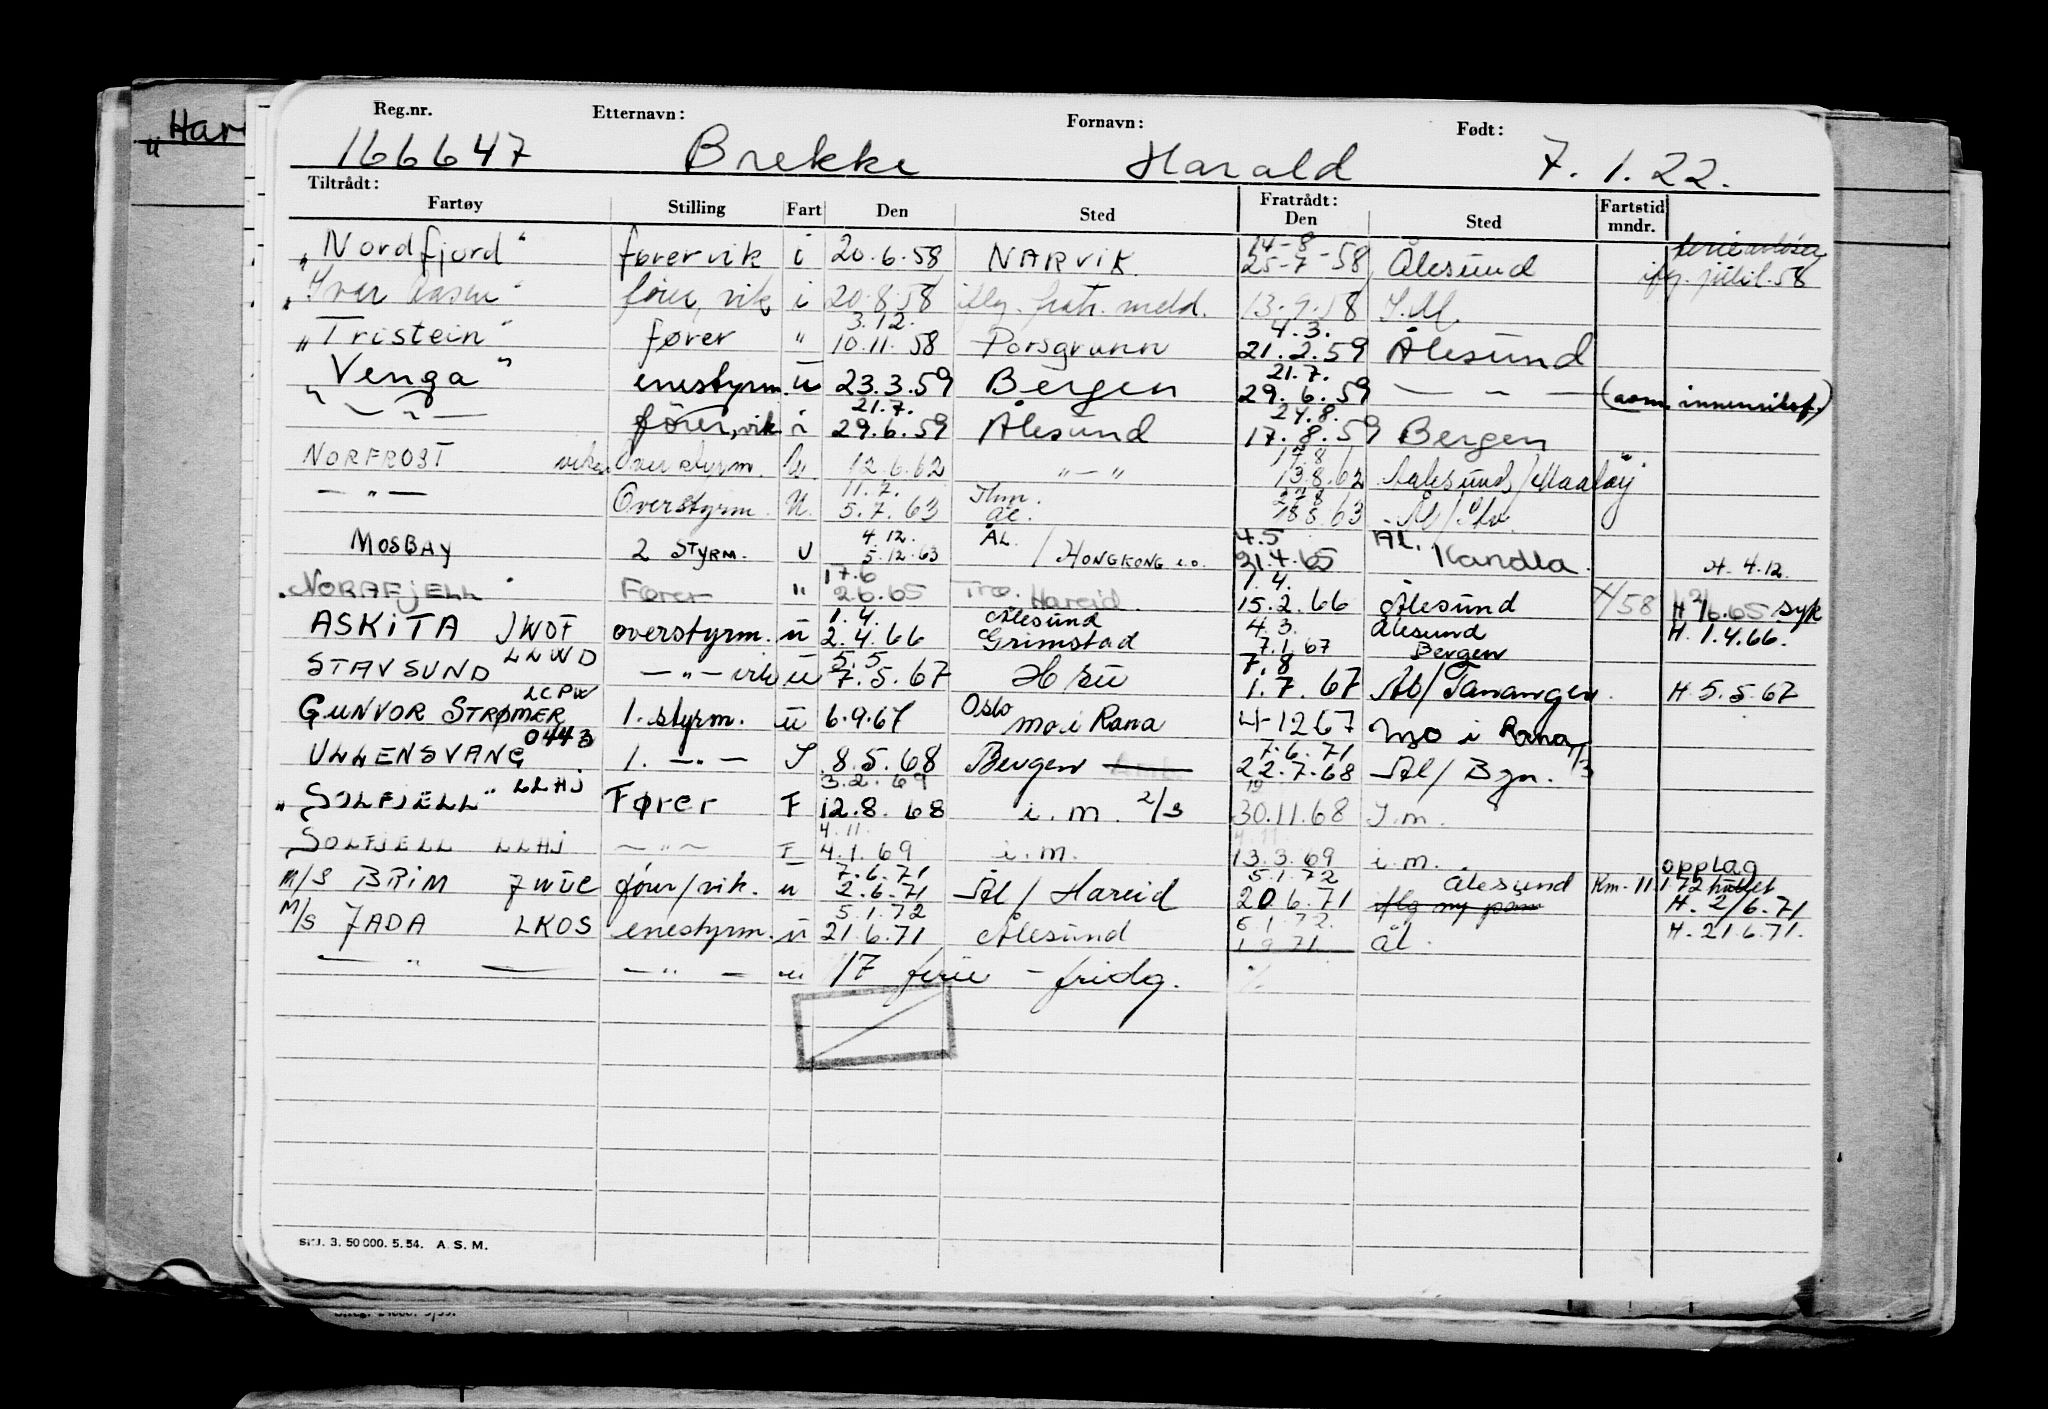 "Har
Reg.nr. Etternavn: Fornavn: Født:
166647 Brekke Harald 7.1.22.
Tiltrådt: Fratrådt:
Fartøy Stilling Fart Den Sted Den Sted Fartstid mndr.
14-8
"Nordfjord" fører vik i 20.6.58 NARVIK. 25-7-58 Ålesund
"Ivar Aasen" fører, vik i 20.8.58 iflg. fratr. meld. 13.9.58 I.M.
3.12. 4.3.
"Tristein" fører " 10.11.58 Porsgrunn 21.2.59 Ålesund
21.7.
"Venga" enestyrm. u 23.3.59 Bergen 29.6.59 — " — (aom. innenriksf.)
21.7. 24.8.
— " — fører, vik i 29.6.59 Ålesund 17.8.59 Bergen
NORFROST vik. Overstyrm. U. 12.6.62 " — " 13.8.62 Aalesund/Maaløy
11.7.
— " — Overstyrm. U. 5.7.63 Ål. 63
4.12. ÅL. 4.5 ÅL.
MOSBAY 2 STYRM. U 5.12.63 / HONGKONG 21.4.65 Kandla H. 4.12.
17.6 1.4.
NORAFJELL Fører " 26.65 Hareid 15.2.66 Ålesund /58 syk
1.4. Ålesund 4.3. Ålesund
ASKITA JWOF overstyrm. u 2.4.66 Grimstad 7.1.67 Bergen H. 1.4.66.
LLWD 5.5 7.8
STAVSUND — " — vik u 7.5.67 H.sū 1.7.67 Ål/Tananger. H. 5.5.67
LCPW Oslo
GUNVOR STRØMER 1. styrm. u 6.9.67 mo i Rana 4-1267 mo i Rana
0443 7.6.71
ULLENSVANG 1. — " — S 8.5.68 Bergen 22.7.68 Ål/Bgn.
LLHJ 3.2.69
"SOLFJELL" Fører F 12.8.68 i.m. 2/3 30.11.68 I.m.
4.11. 4.11.
SOLFJELL LLHJ — " — F 4.1.69 i.m. 13.3.69 i.m.
7.6.71 5.1.72 opplag
M/S BRIM JWUC fører/vik. u 2.6.71 Ål/Hareid 20.6.71 Ålesund Km-11 H. 2/6.71
5.1.72 6.1.72.
M/S JADA LKOS enestyrm. u 21.6.71 Ålesund 1.9.71 Ål. H. 21.6.71.
— " — — " — u 17 ferie - fridg. %
SKJ. 3. 50 000. 5. 54. A. S. M.